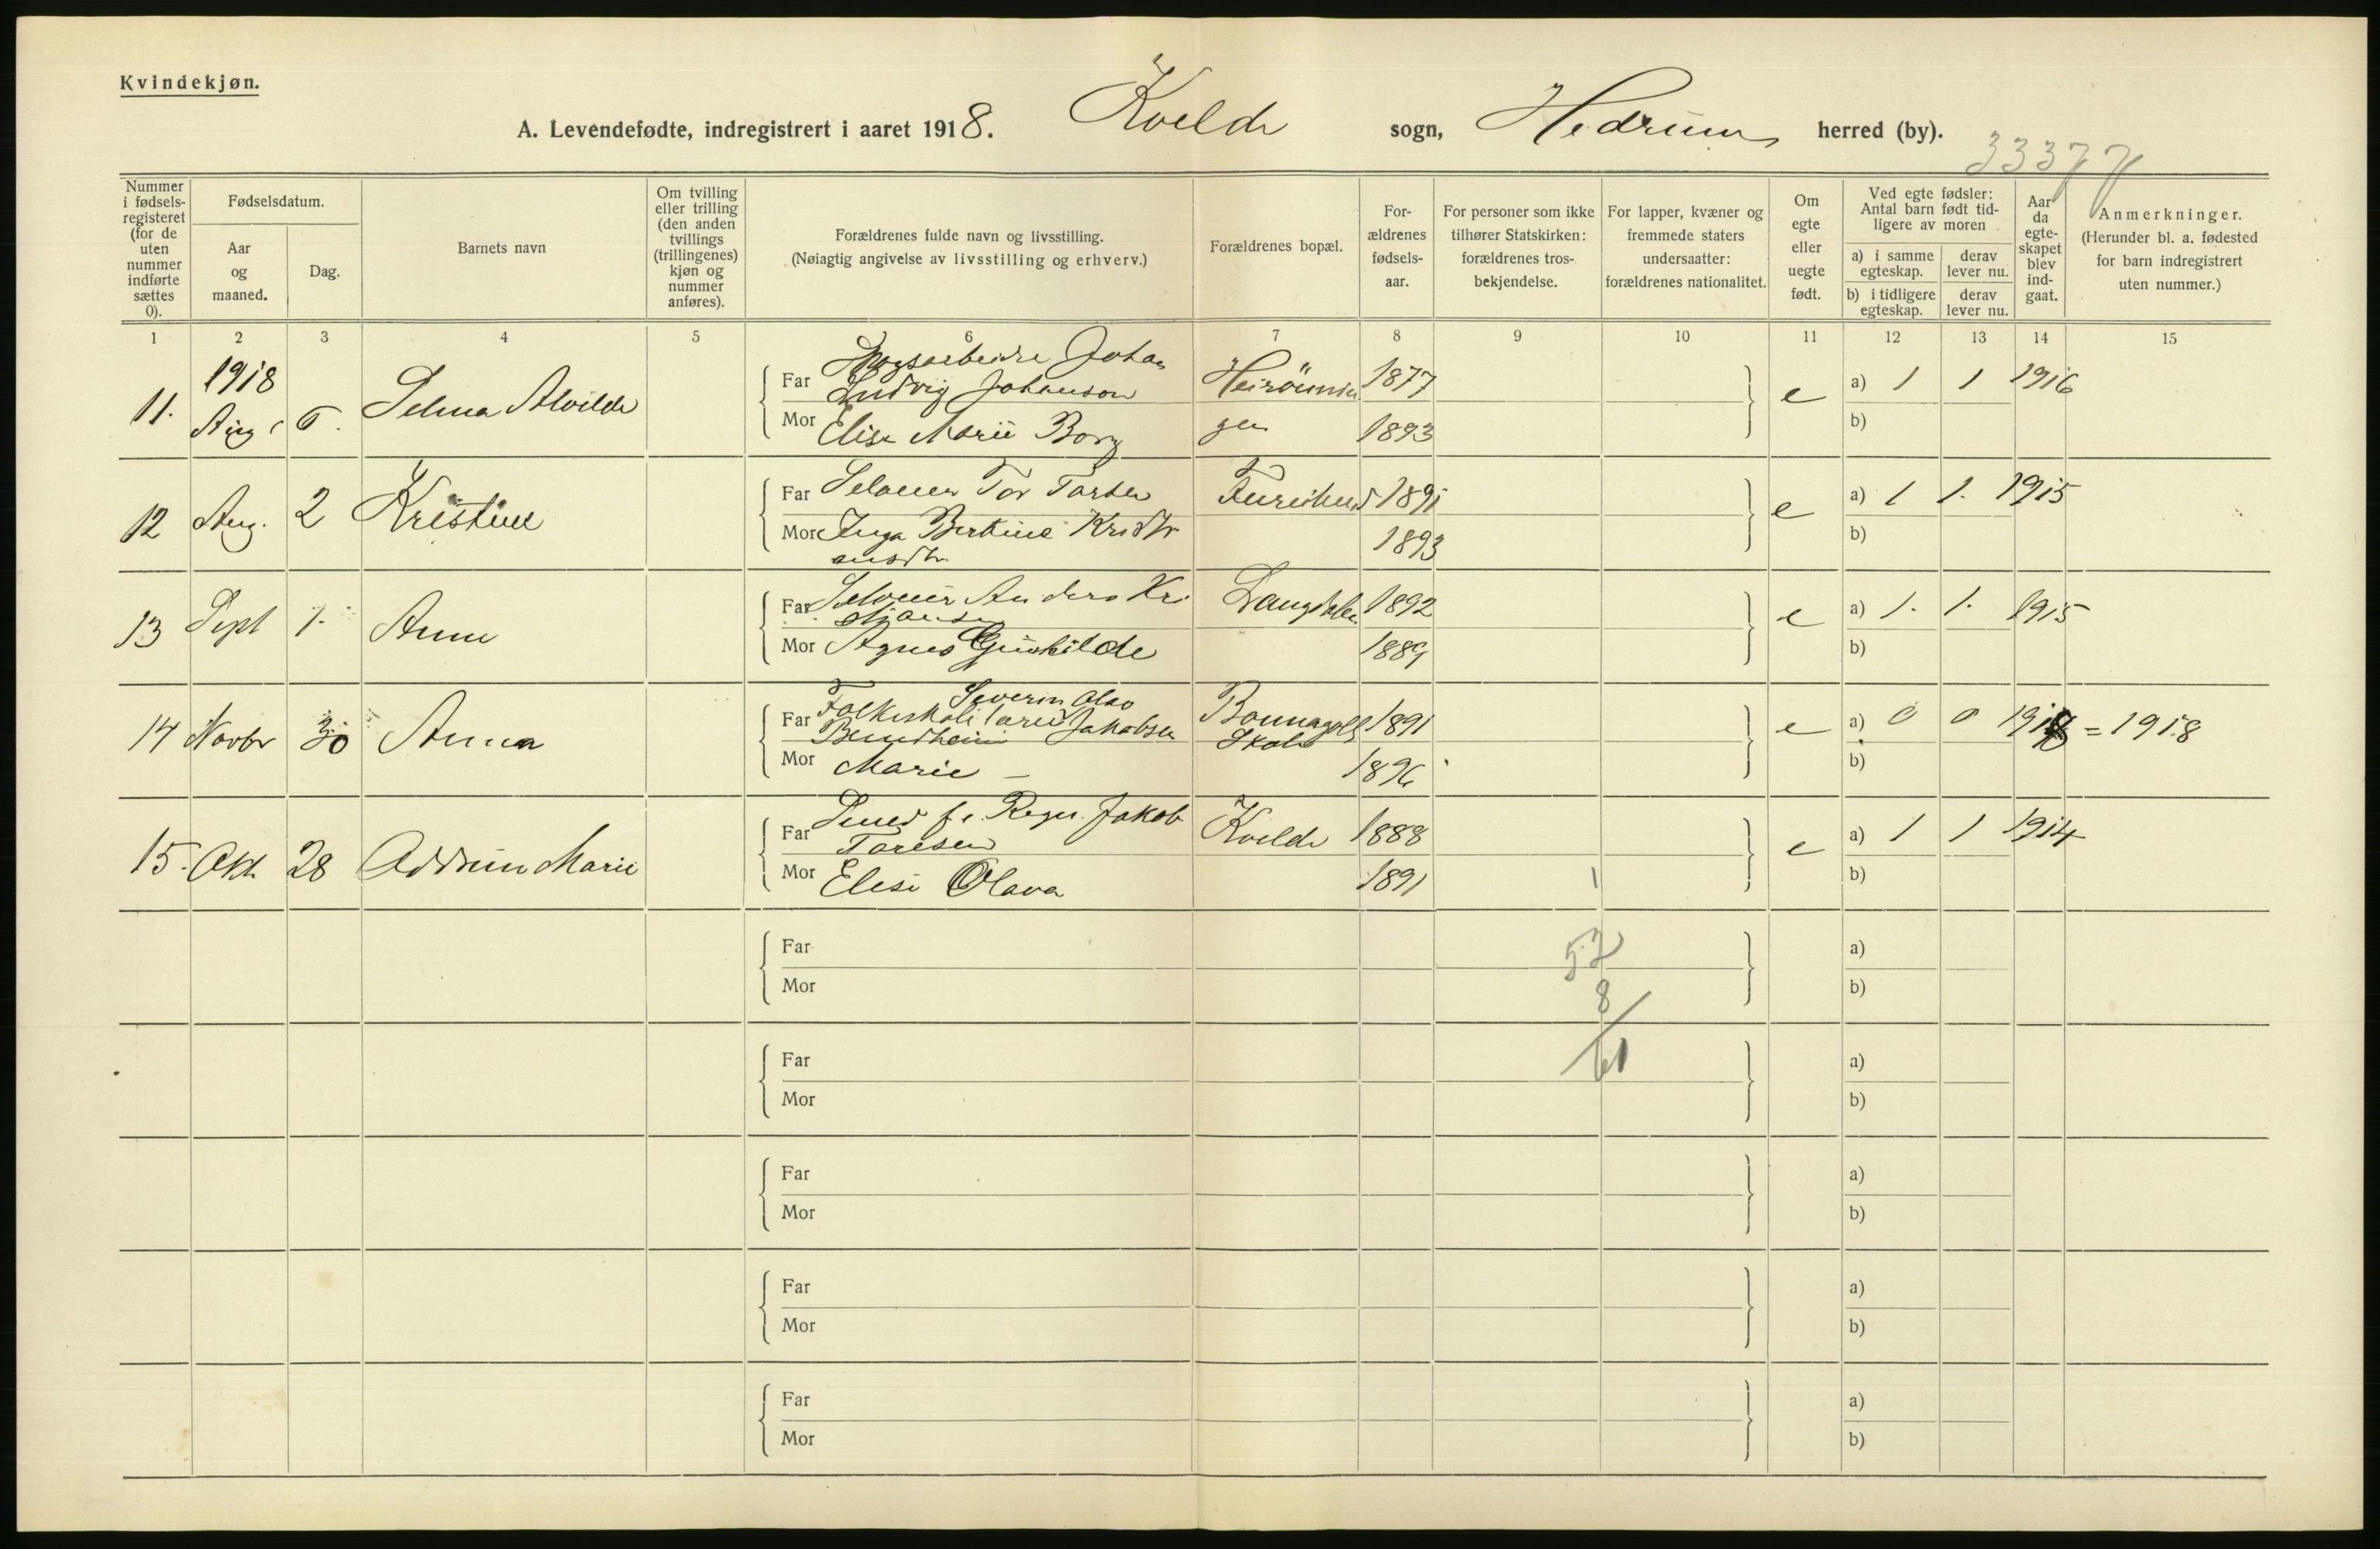 Kvindekjøn.
A. Levendefødte, indregistrert i aaret 1918. Kvelde sogn, Hedrum herred (by).
33377
Nummer i fødsels-registeret (for de uten nummer indførte sættes 0).
Fødselsdatum.
Aar og maaned.
Dag.
Barnets navn
Om tvilling eller trilling (den anden tvillings (trillingenes) kjøn og nummer anføres).
Forældrenes fulde navn og livsstilling.
(Nøiagtig angivelse av livsstilling og erhverv.)
Forældrenes bopæl.
For-ældrenes fødsels-aar.
For personer som ikke tilhører Statskirken: forældrenes tros-bekjendelse.
For lapper, kvæner og fremmede staters undersaatter: forældrenes nationalitet.
Om egte eller uegte født.
Ved egte fødsler: Antal barn født tid-ligere av moren
a) i samme egteskap.
derav lever nu.
b) i tidligere egteskap.
derav lever nu.
Aar da egte-skapet blev ind-gaat.
Anmerkninger.
(Herunder bl. a. fødested for barn indregistrert uten nummer.)
1 2 3 4 5 6 7 8 9 10 11 12 13 14 15
1918
11. Aug 6. Selma Alvilde
Far Johan
Ludvig Johanson 1877
Mor Elise Marie Borg gen 1893
e a) 1 1 1916
b)
12 Aug. 2 Kristine
Far Selveier Tor Torsen 1891
Mor Inga Bertine Kristi
ansdtr 1893
e a) 1 1. 1915
b)
13 Sept 1. Anne
Far Selveier Anders Kri
stiansen Langdalen 1892
Mor Agnes Gunhilde 1889
e a) 1. 1. 1915
b)
14 Novbr 30 Anna
Far Folkeskolelærer Severin Olav
Jakobsen Skole 1891
Mor Marie — 1896
e a) 0 0 1918 = 1918
b)
15. Okt. 28 Marie
Far Smed Jakob
Toresen Kvelde 1888
Mor Elise Olava 1891
e a) 1 1 1914
b)
1
Far
Mor
a)
b)
52
8
61
Far
Mor
a)
b)
Far
Mor
a)
b)
Far
Mor
a)
b)
Far
Mor
a)
b)